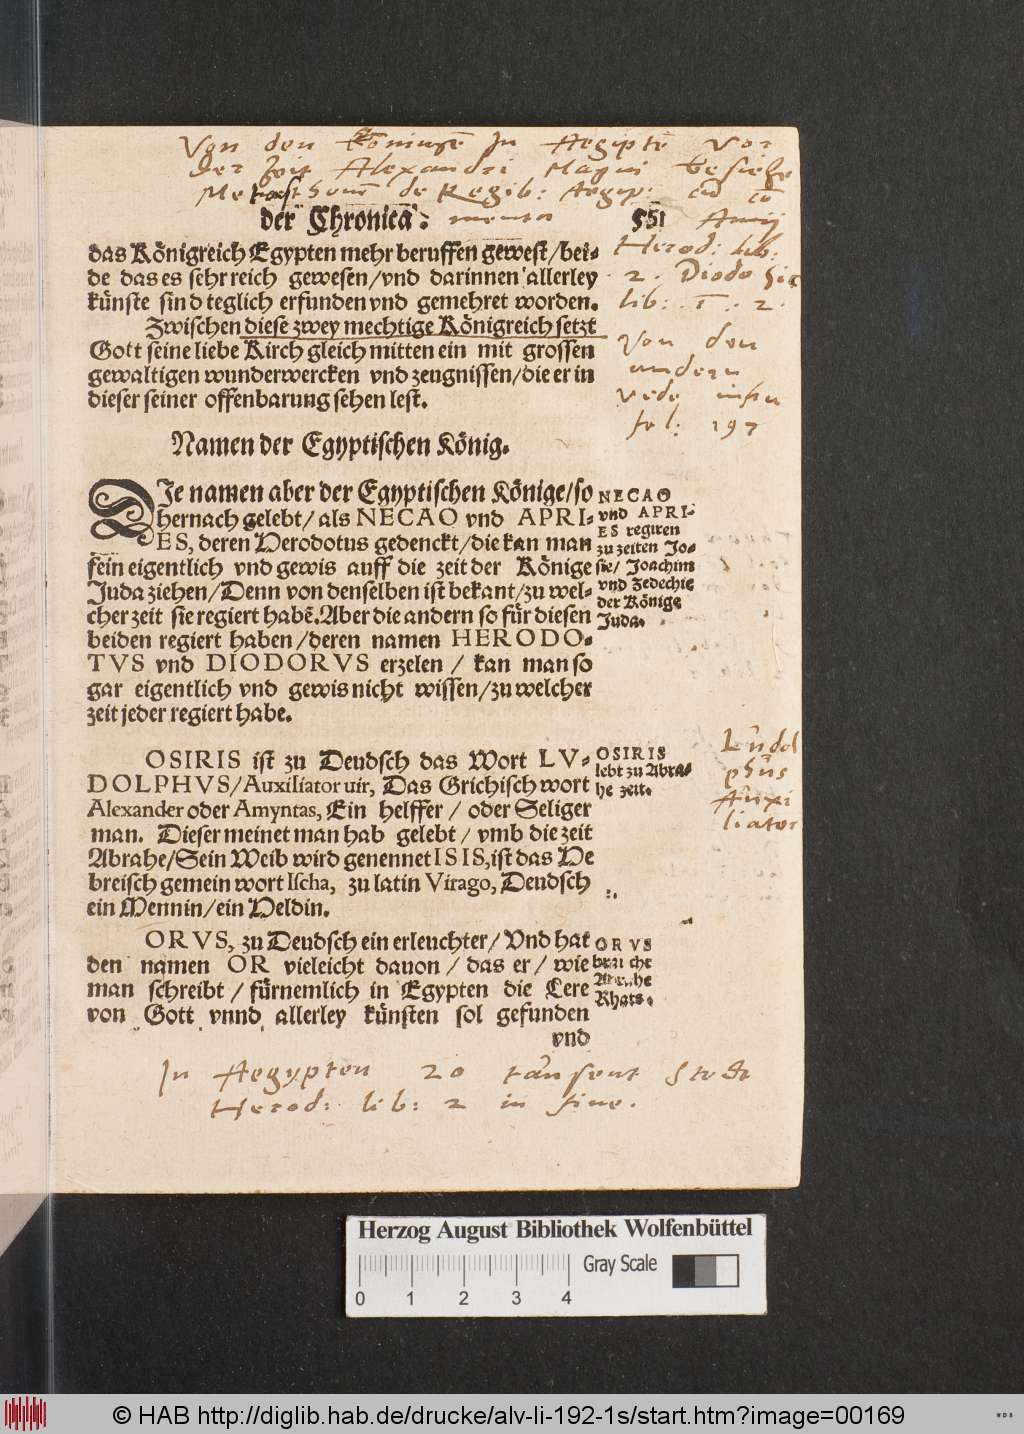 Von den Köninge In Aegiptē vor
der Zeit Alexandri Magni besiehe
de Regib: Aegyp: cū cō
mentar
der Chronica. 551
Herod: lib:
2. Diodo Sic
lib: 1. 2.
Von den
andern
vide infra
fol: 197
das Königreich Egypten mehr beruffen gewest/bei-
de das es sehr reich gewesen/vnd darinnen allerley
künste sind teglich erfunden vnd gemehret worden.
Zwischen diese zwey mechtige Königreich setzt
Gott seine liebe Kirch gleich mitten ein mit grossen
gewaltigen wunderwercken vnd zeugnissen/die er in
dieser seiner offenbarung sehen lest.
Namen der Egyptischen König.
DIe namen aber der Egyptischen Könige/so
hernach gelebt/als NECAO vnd APRI-
ES, deren Herodotus gedenckt/die kan man
fein eigentlich vnd gewis auff die zeit der Könige
Juda ziehen/Denn von denselben ist bekant/zu wel-
cher zeit sie regiert habē. Aber die andern so für diesen
beiden regiert haben/deren namen HERODO-
TVS vnd DIODORVS erzelen/kan man so
gar eigentlich vnd gewis nicht wissen/zu welcher
zeit jeder regiert habe.
NECAO
vnd APRI-
ES regiren
zu zeiten Jo-
sie/Joachim
vnd Zedechie
der Könige
Juda.
OSIRIS ist zu Deudsch das Wort LV-
DOLPHVS/Auxiliator uir, Das Grichisch wort
Alexander oder Amyntas, Ein helffer/oder Seliger
man. Dieser meinet man hab gelebt/vmb die zeit
Abrahe/Sein Weib wird genennet ISIS, ist das He
breisch gemein wort Ischa, zu latin Virago, Deudsch
ein Mennin/ein Heldin.
OSIRIS
lebt zu Abra-
he zeit.
Ludol
phus
Auxi
liator
ORVS, zu Deudsch ein erleuchter/Vnd hat
den namen OR vieleicht dauon/das er/wie
man schreibt/fürnemlich in Egypten die Lere
von Gott vnnd allerley künsten sol gefunden
vnd
ORVS
Abrahe
Rhats.
In Aegypten 20 tausent Stedt
Herod: lib: 2 in fine.
Herzog August Bibliothek Wolfenbüttel
Gray Scale
0 1 2 3 4
© HAB http://diglib.hab.de/drucke/alv-li-192-1s/start.htm?image=00169